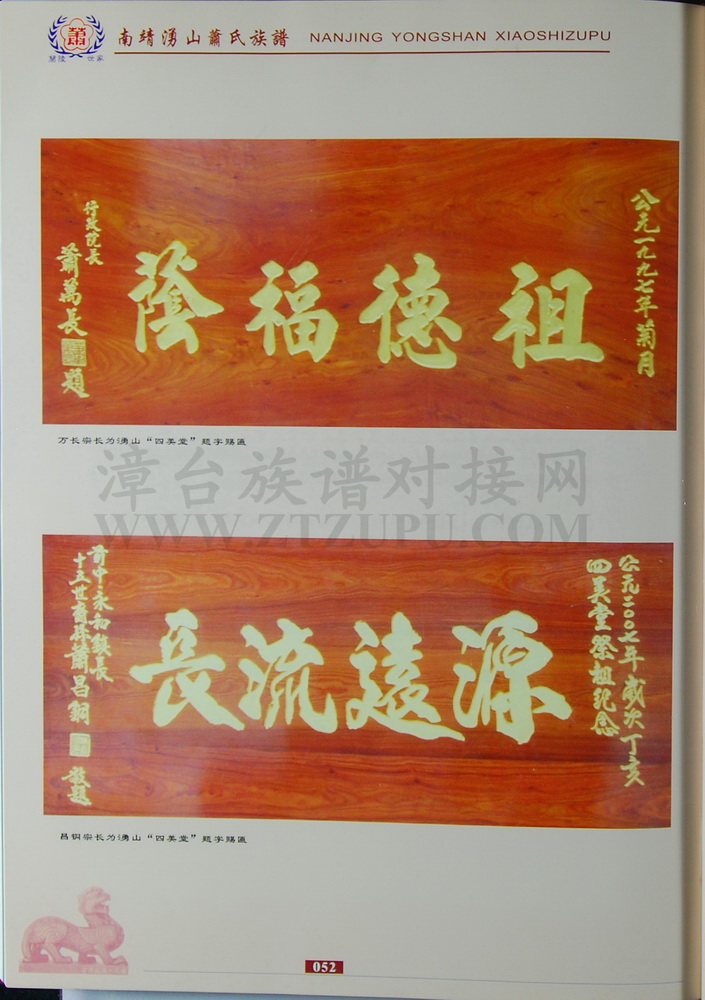 蕭
蘭陵 世家
南靖湧山蕭氏族譜 NANJING YONGSHAN XIAOSHIZUPU
公元一九九七年菊月
祖德福蔭
行政院長
蕭萬長 題
万长宗长为湧山“四美堂”题字赐匾
漳台族谱对接网
WWW.ZTZUPU.COM
公元二００七年歲次丁亥
四美堂祭祖紀念
源遠流長
前中永和鎮長
十五世裔孫蕭昌銅 敬題
昌铜宗长为湧山“四美堂”题字赐匾
052